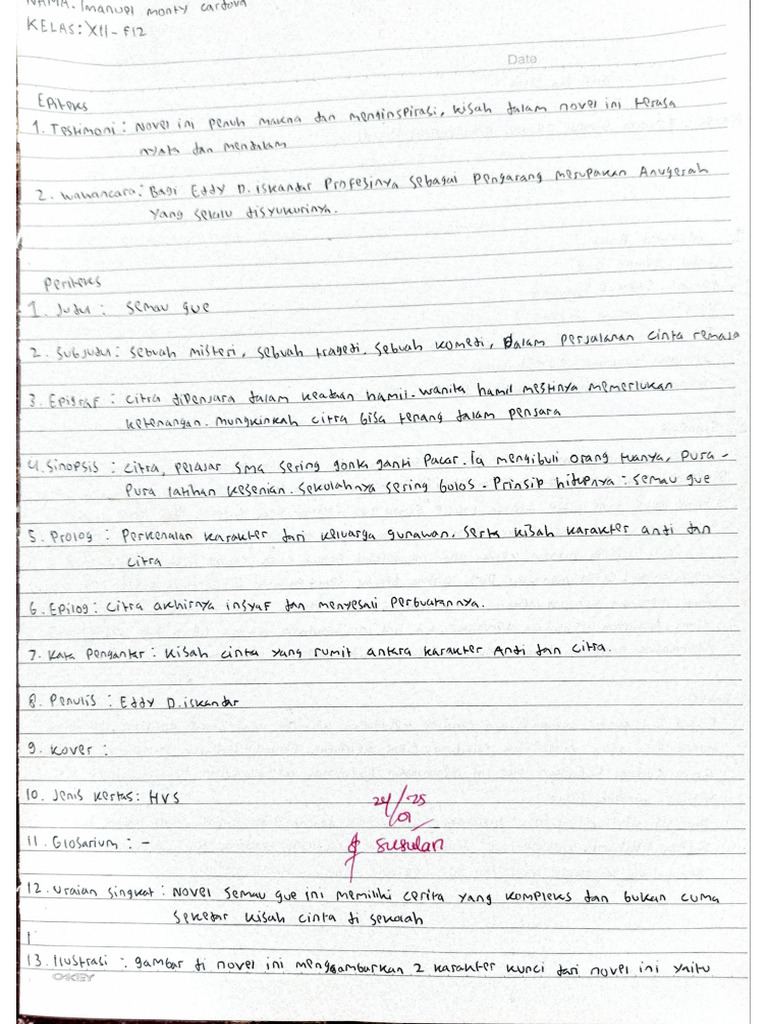 NAMA: Imanuel monty cardova
KELAS: XII - F12
Date
Epiteks
1. Testimoni : Novel ini penuh makna dan menginspirasi, kisah dalam novel ini terasa
nyata dan mendalam
2. wawancara : Bagi Eddy D. iskandar Profesinya sebagai Pengarang merupakan Anugerah
yang selalu disyukurinya.
Periteks
1. Judul : semau gue
2. Subjudul : sebuah misteri, sebuah tragedi, sebuah komedi, Dalam perjalanan cinta remaja
3. Epigraf : citra dipenjara dalam keadaan hamil. wanita hamil mestinya memerlukan
ketenangan. mungkinkah citra bisa tenang dalam penjara
4. Sinopsis : citra, pelajar sma sering gonta ganti pacar. Ia mengibuli orang tuanya, pura-
pura latihan kesenian. sekolahnya sering bolos. Prinsip hidupnya : semau gue
5. Prolog : Perkenalan karakter dari keluarga gunawan. serta kisah karakter anti dan
citra
6. Epilog : citra akhirnya insyaf dan menyesali perbuatannya.
7. kata pengantar : kisah cinta yang rumit antara karakter Anti dan citra.
8. Penulis : Eddy D. iskandar
9. kover :
10. Jenis kertas : HVS
24/25
01
susulan
11. Glosarium : -
12. uraian singkat : Novel semau gue ini memiliki cerita yang kompleks dan bukan cuma
sekedar kisah cinta di sekolah
13. Ilustrasi : gambar di novel ini menggambarkan 2 karakter kunci dari novel ini yaitu
OKEY